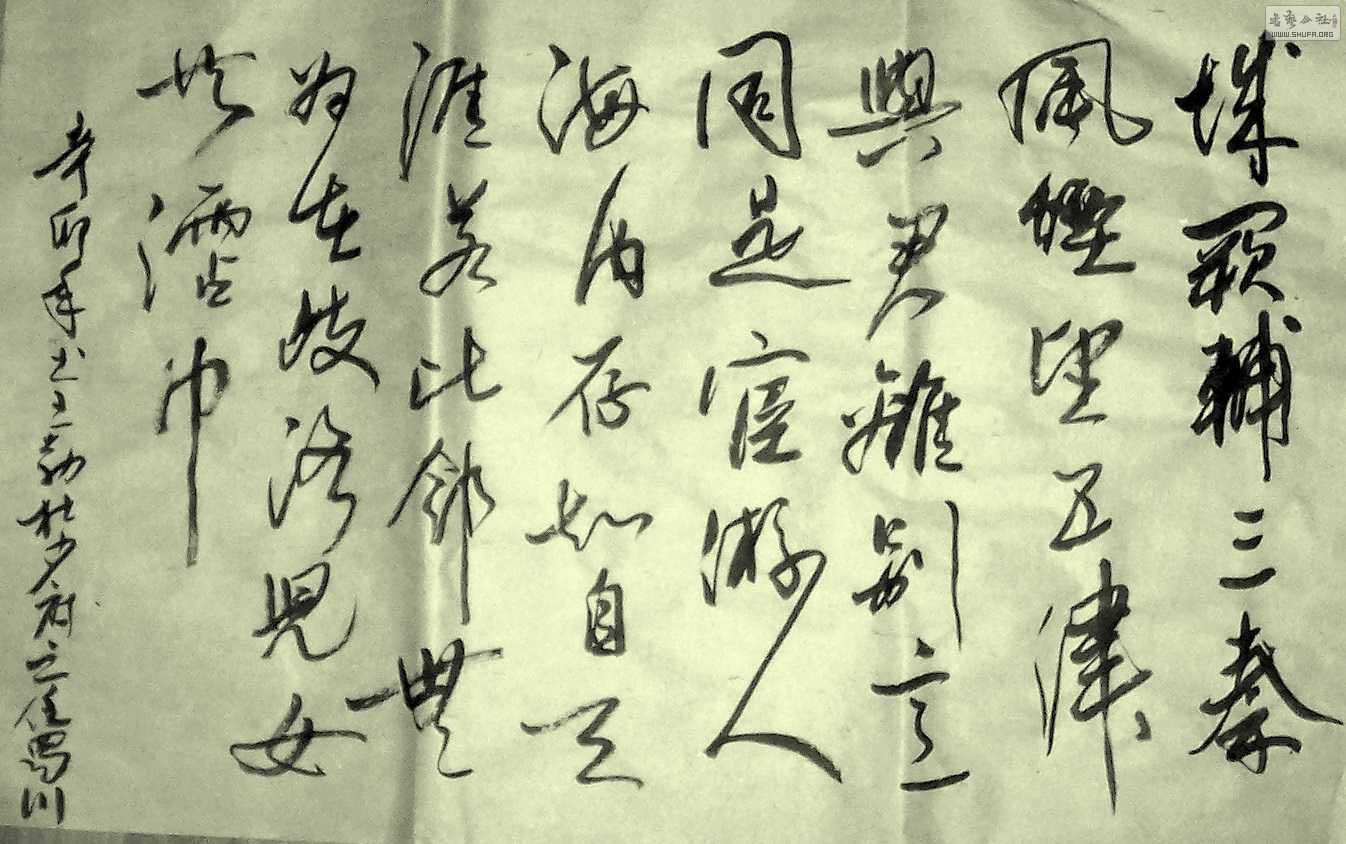 城闕輔三秦
風煙望五津
與君離別意
同是宦游人
海内存知自天
涯若比鄰無
為在歧路兒女
共霑巾
辛卯年书王勃杜少府之任蜀川
书艺公社
WWW.SHUFA.ORG